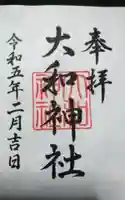 奉拝
大和神社
令和五年二月吉日